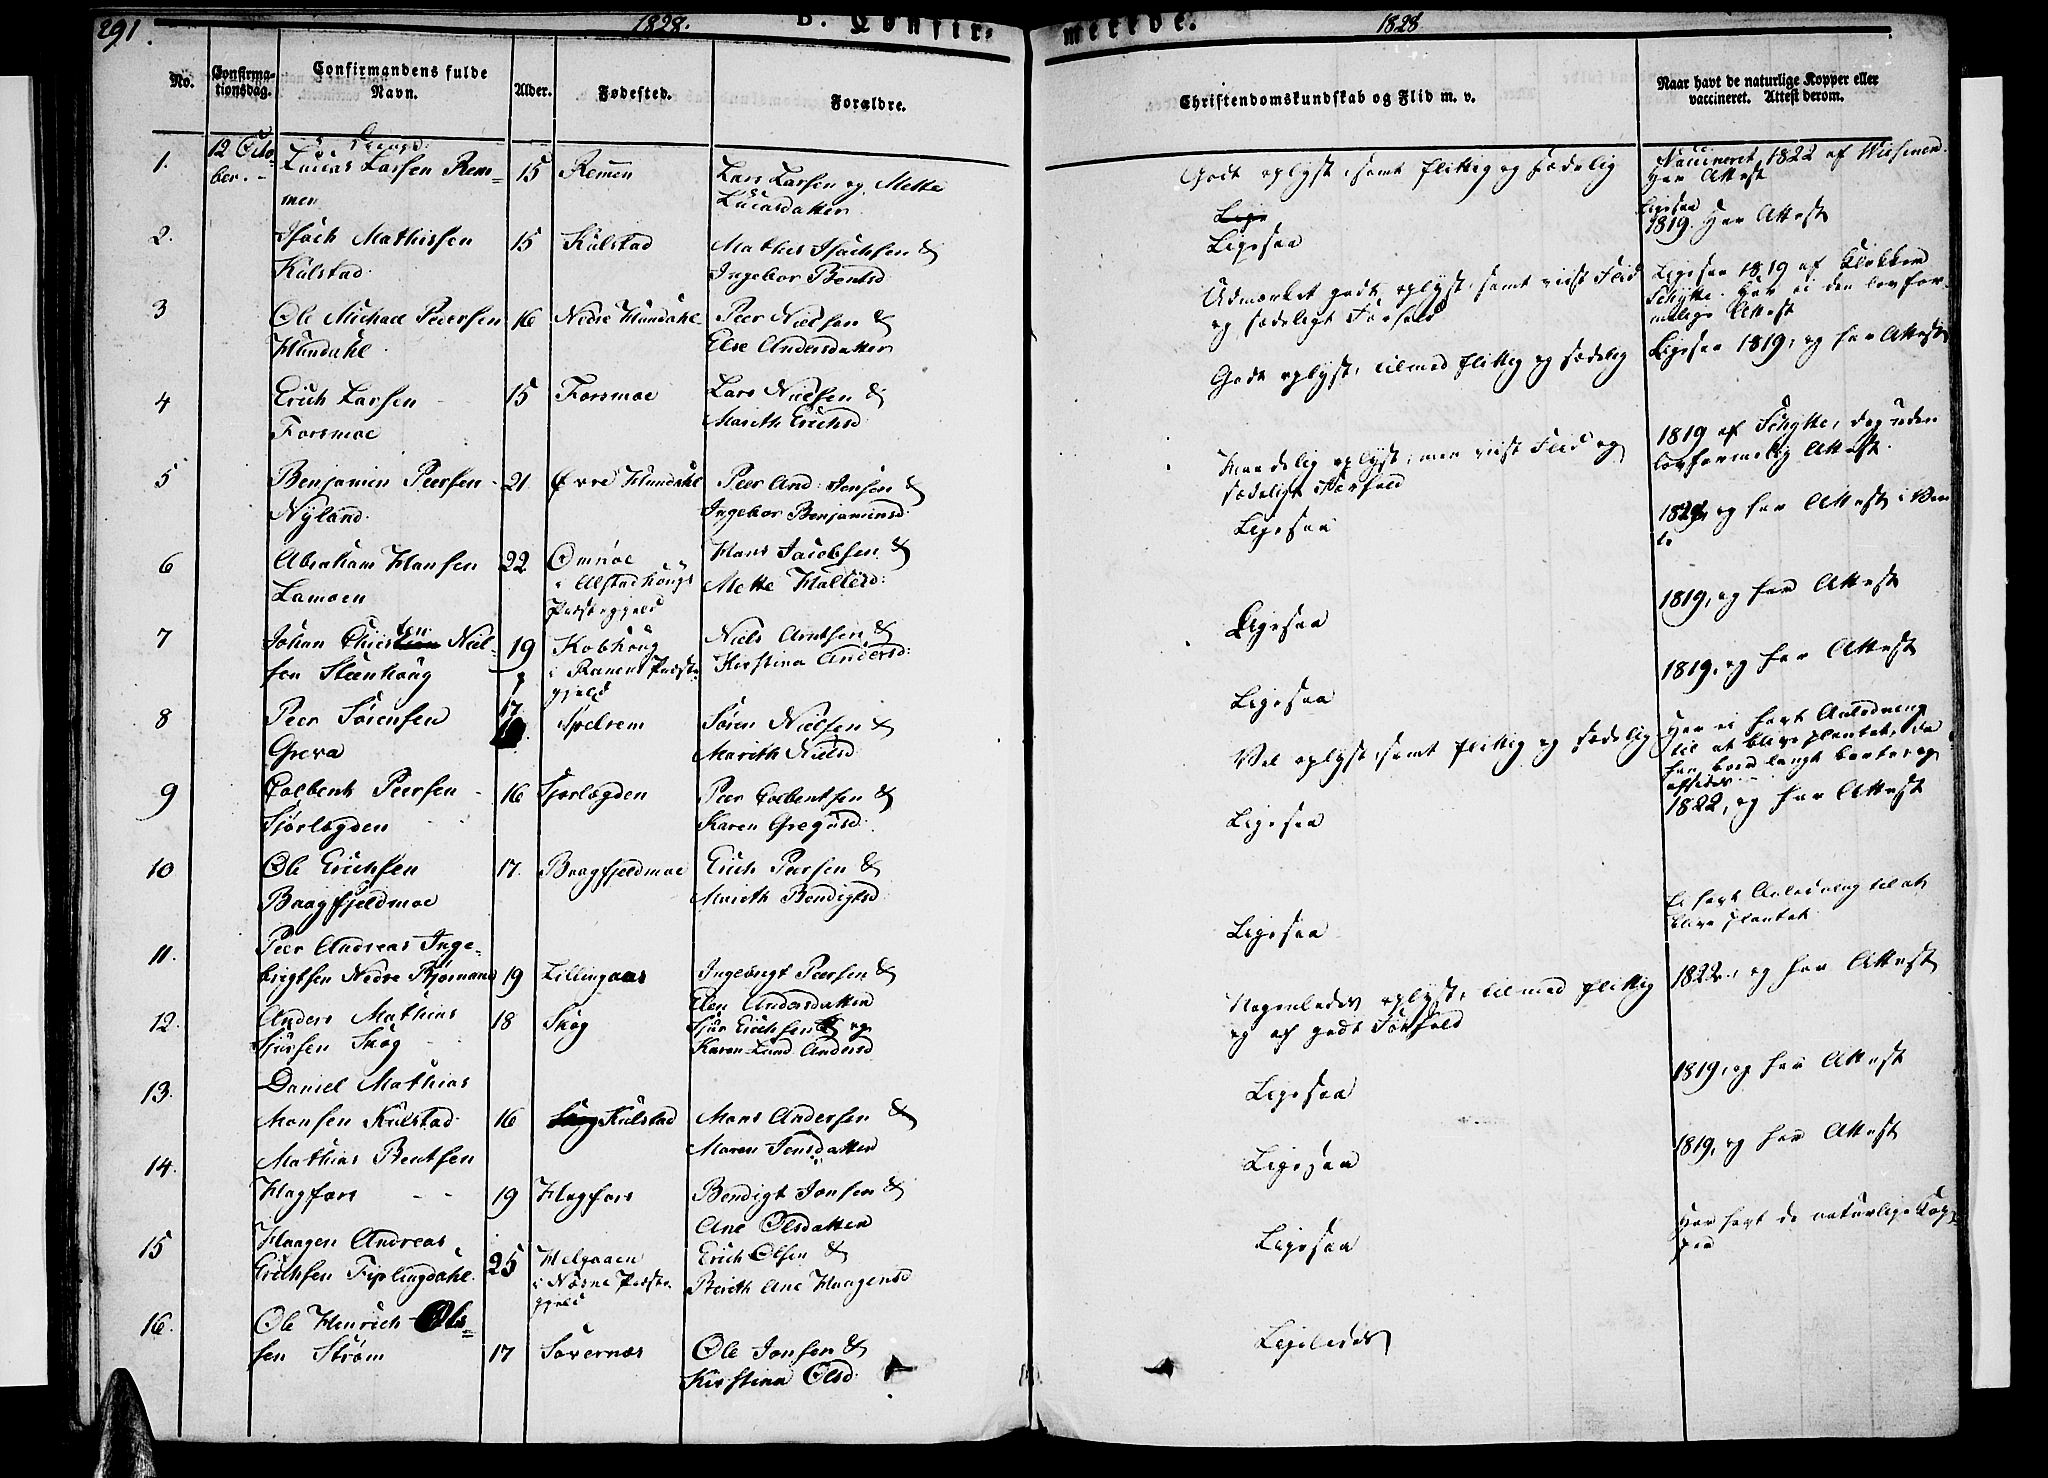 291
1828.
B. Confir-
merede.
1828
No.
Confirma-
tionsdag.
Confirmandens fulde
Navn.
Alder.
Fødested.
Forældre.
Christendomskundskab og Flid m. v.
Naar havt de naturlige Kopper eller
vaccineret. Attest derom.
1.
12 Octo-
ber.
Drenge:
Lucas Larsen Rem-
men
15
Remen
Lars Larsen og Mette
Lucasdatter
Godt oplyst, samt flittig og sædelig
Vaccineret 1822 af
Har Attest
2.
Isach Mathissen
Kulstad
15
Kulstad
Mathis Isachsen &
Ingebor Bentsd
Ligesaa
Ligesaa
1819. Har Attest
3
Ole Michael Peersen
Hundahl
16
Nedre Hundahl
Peer Nielsen &
Else Andersdatter
Udmærket godt oplyst, samt viist Flid
og sædeligt Forhold
Ligesaa 1819 af Klokker
Schytte. Har ei den lovfor-
melige Attest
4
Erich Larsen
Forsmoe
15
Forsmoe
Lars Nielsen &
Marith Erichsd
Godt oplyst, tilmed flittig og sædelig
Ligesaa 1819, og har Attest
5
Benjamin Peersen
Nyland
21
Øvre Hundahl
Peer And: Jensen &
Ingebor Benjaminsd
Maadelig oplyst, men viist Flid og
sædeligt Forhold
1819 af Schytte, dog uden
lovformelig Attest.
6
Abraham Hansen
Lamoen
22
Omnøe
i Alstadhougs
Præstegjeld
Hans Jacobsen &
Mette Hallesd:
Ligesaa
og har Attest i
7
Johan Christen Niel-
sen Steenhoug
19
Kobhoug
i Ranens Præste-
gjeld
Niels Arntsen &
Kirstina Andersd:
Ligesaa
1819, og har Attest
8
Peer Sørensen
Greva
17
Spelrem
Søren Nielsen &
Marith Nielsd
Ligesaa
1819, og har Attest
9
Colbent Peersen
Sjørlægden
16
Sjørlægden
Peer Colbentsen &
Karen Gregusd
Vel oplyst, samt flittig og sædelig
Har ei havt Anledning
til at blive plantet, da
han boer langt borte og
afsides
10
Ole Erichsen
Baagfjeldmoe
17.
Baagfjeldmoe
Erich Peersen &
Marith Bendigtsd
Ligesaa
1822, og har Attest
11.
Peer Andreas Inge-
brigtsen Nedre Bjørnaae
19
Lillingaas
Ingebrigt Peersen &
Elen Andersdatter
Ligesaa
Ei havt Anledning til at
blive plantet
12.
Anders Mathias
Sjursen Skog
18
Skog
Sjur Erichsen og
Karen Lund Andersd
Nogenledes oplyst, tilmed flittig
og af godt Forhold
1822, og har Attest
13.
Daniel Mathias
Monsen Kulstad
16
Kulstad
Mons Andersen &
Maren Jonsdatter
Ligesaa
1819, og har Attest
14.
Mathias Bentsen
Hagfors
19
Hagfors
Bendigt Jonsen &
Ane Olsdatter
Ligesaa
1819, og har Attest
15
Haagen Andreas
Erichsen Fiplingdahl
25
Melgaaen
i Næsne Præste-
gjeld
Erich Olsen &
Berith Ane Haagensd
Ligesaa
Har havt de naturlige Kop-
per
16.
Ole Henrich Ole-
sen Strøm
17
Søvernæs
Ole Jonsen &
Kirstina Olsd
Ligeledes